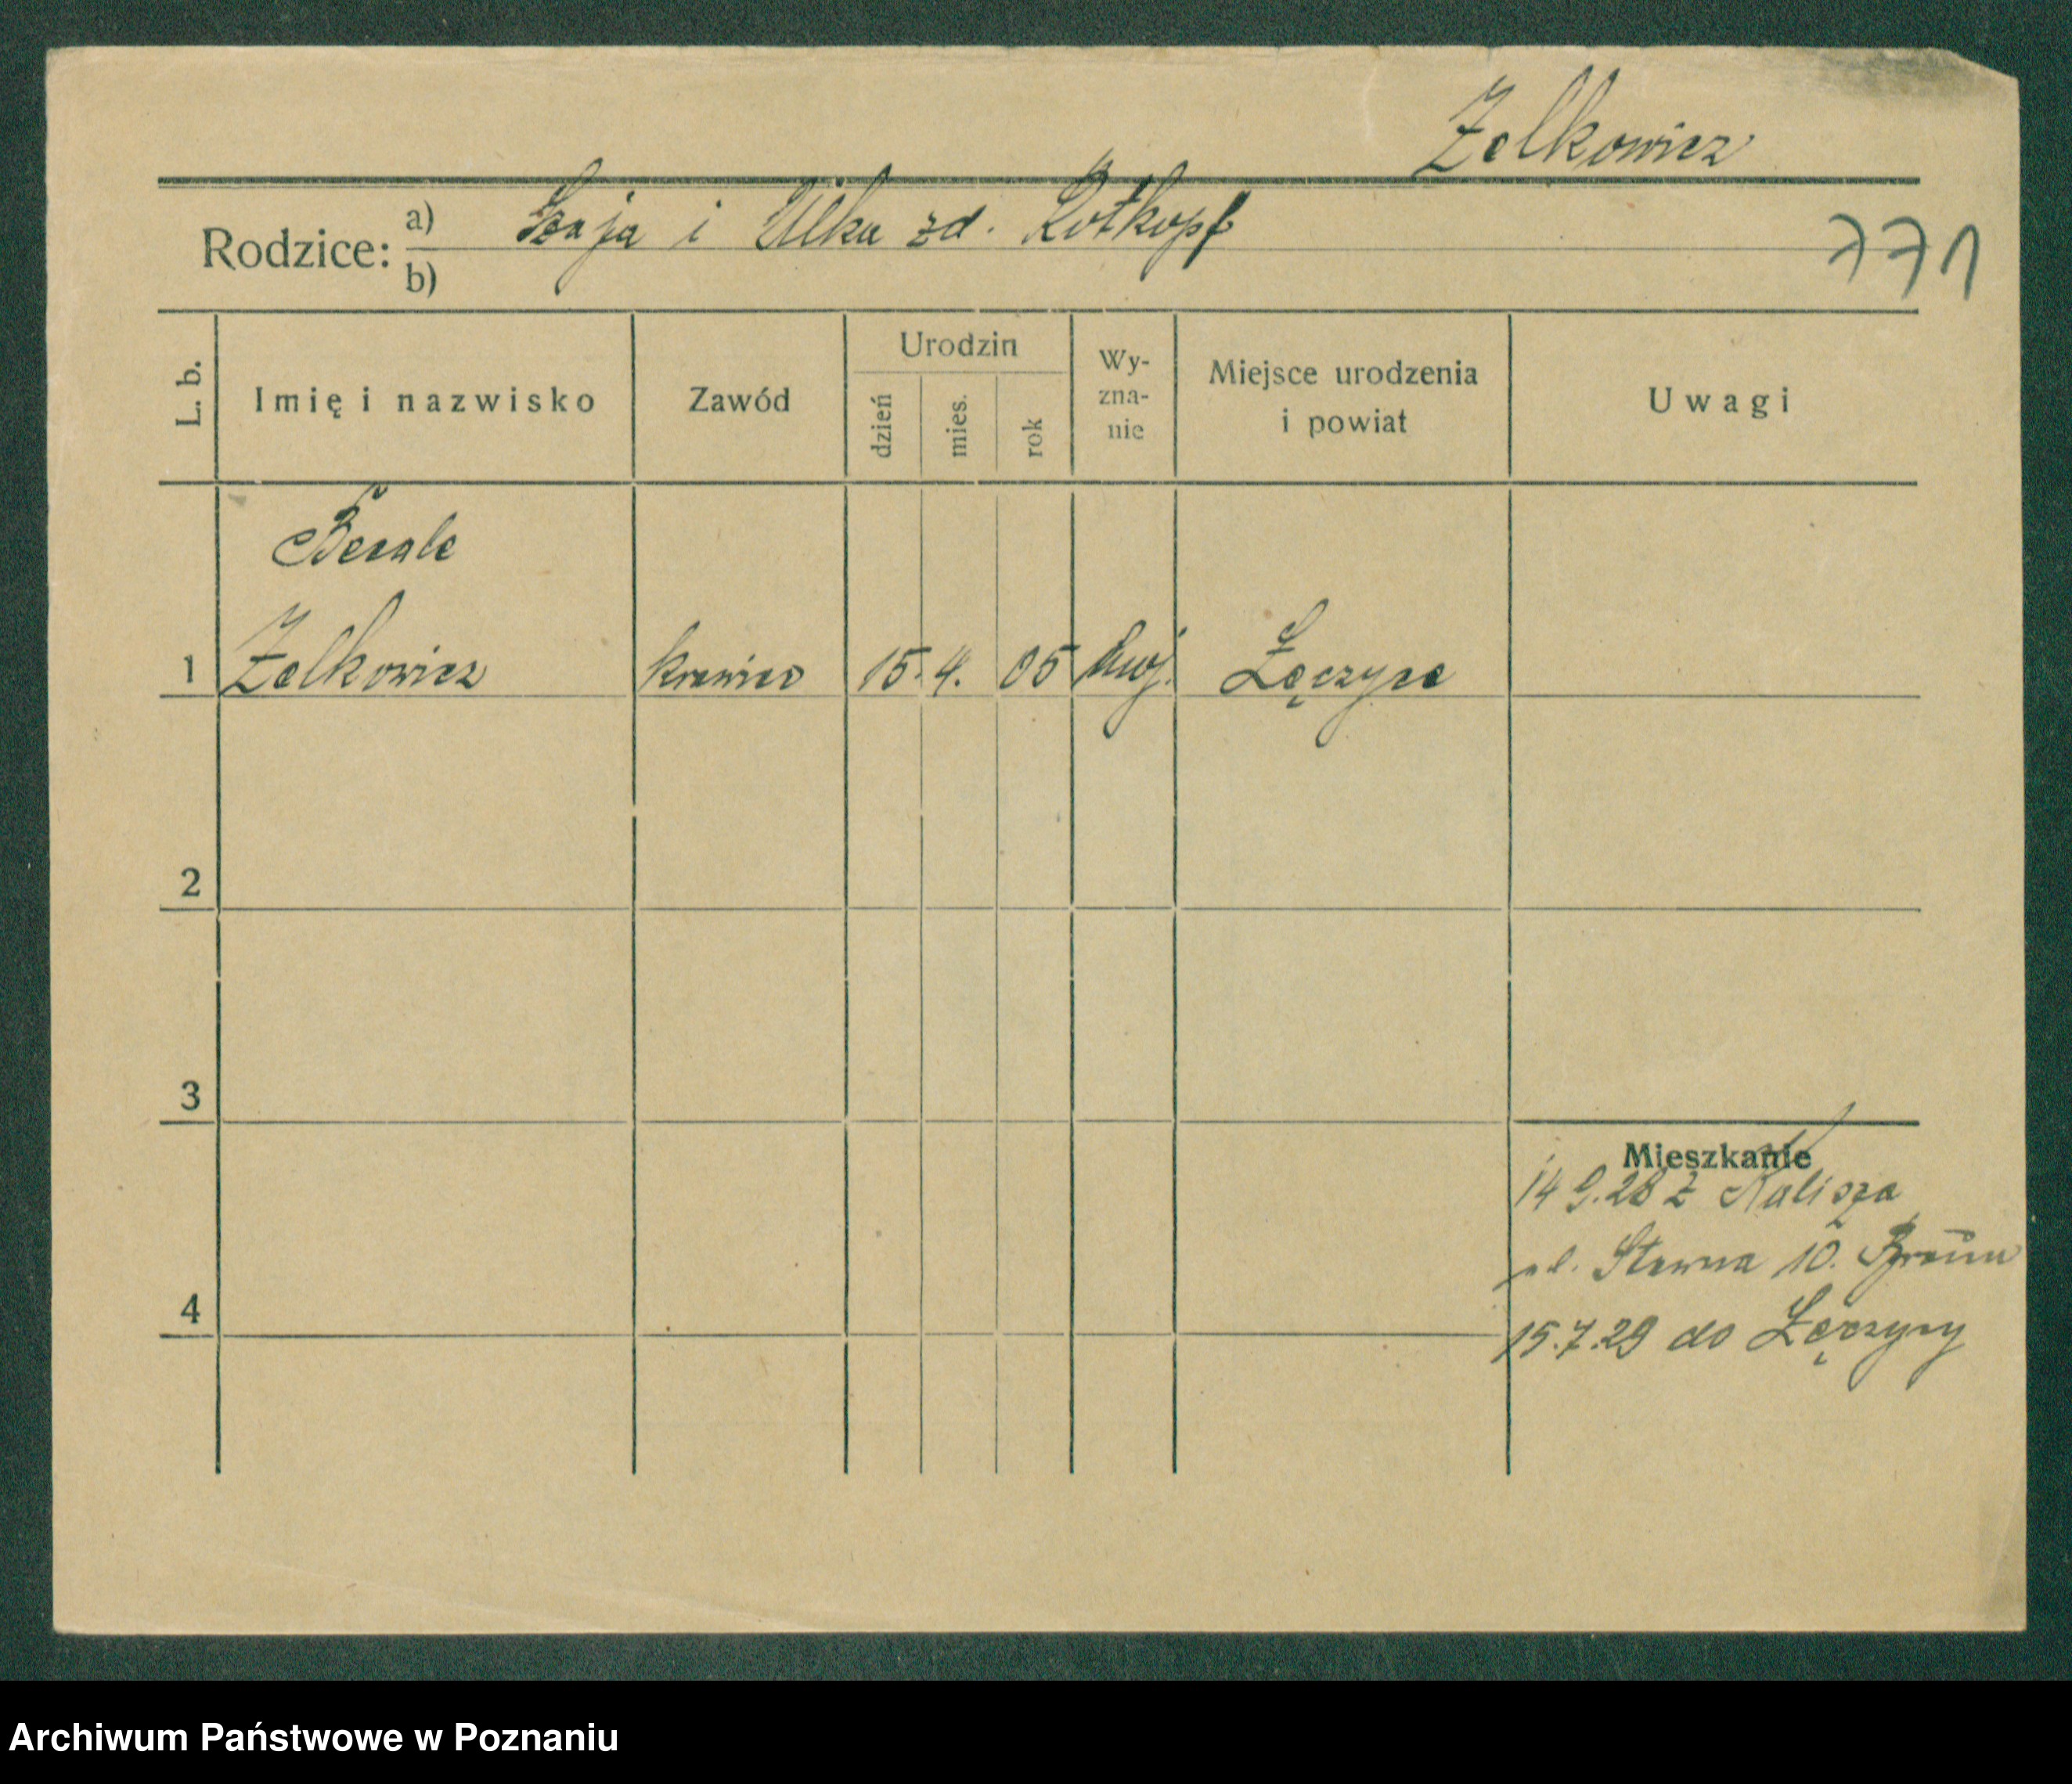 Zelkowicz
Rodzice: a) Szaja i Ulka zd. Rotkopf
b)
771
L. b.
Imię i nazwisko
Zawód
Urodzin
dzień
mies.
rok
Wy-
zna-
nie
Miejsce urodzenia
i powiat
Uwagi
Bezale
1 Zelkowicz krawiec 15. 4. 05 moj. Łęczyce
2
3
4
Mieszkanie
14 9.28 z Kalisza
ul. Stawna 10.
15.7.29 do Łęczycy
Archiwum Państwowe w Poznaniu